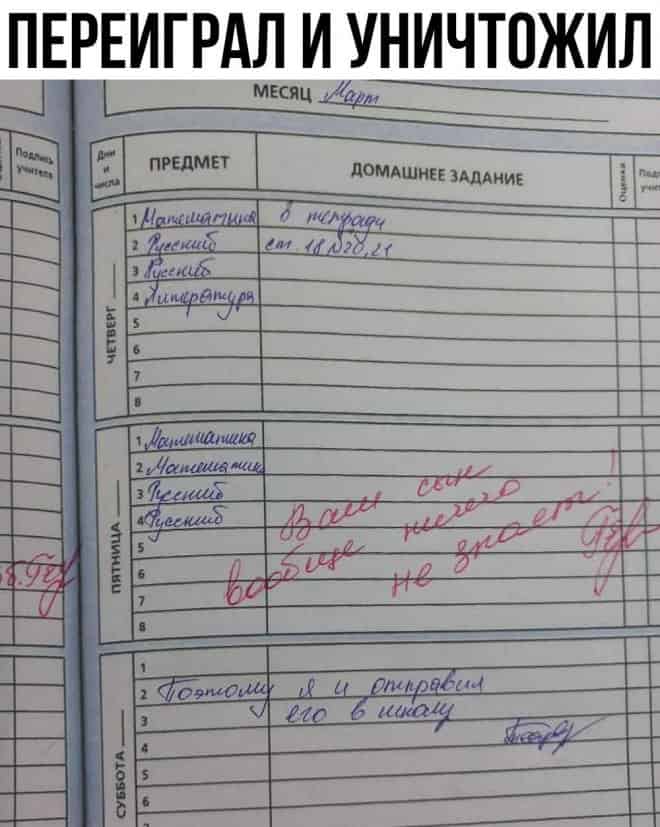 ПЕРЕИГРАЛ И УНИЧТОЖИЛ
МЕСЯЦ Март
Подпись учителя
Дни и числа
ПРЕДМЕТ
ДОМАШНЕЕ ЗАДАНИЕ
Оценка
ЧЕТВЕРГ
1 Математика в тетради
2 Русский ст. 18 №20,21
3 Русский
4 Литература
5
6
7
8
ПЯТНИЦА
1 Математика
2 Математик
3 Русский
4 Русский
5
6
7
8
Ваш сын
вообще ничего
не знает!
СУББОТА
1
2 Поэтому я и отправил
3 его в школу
4
5
6